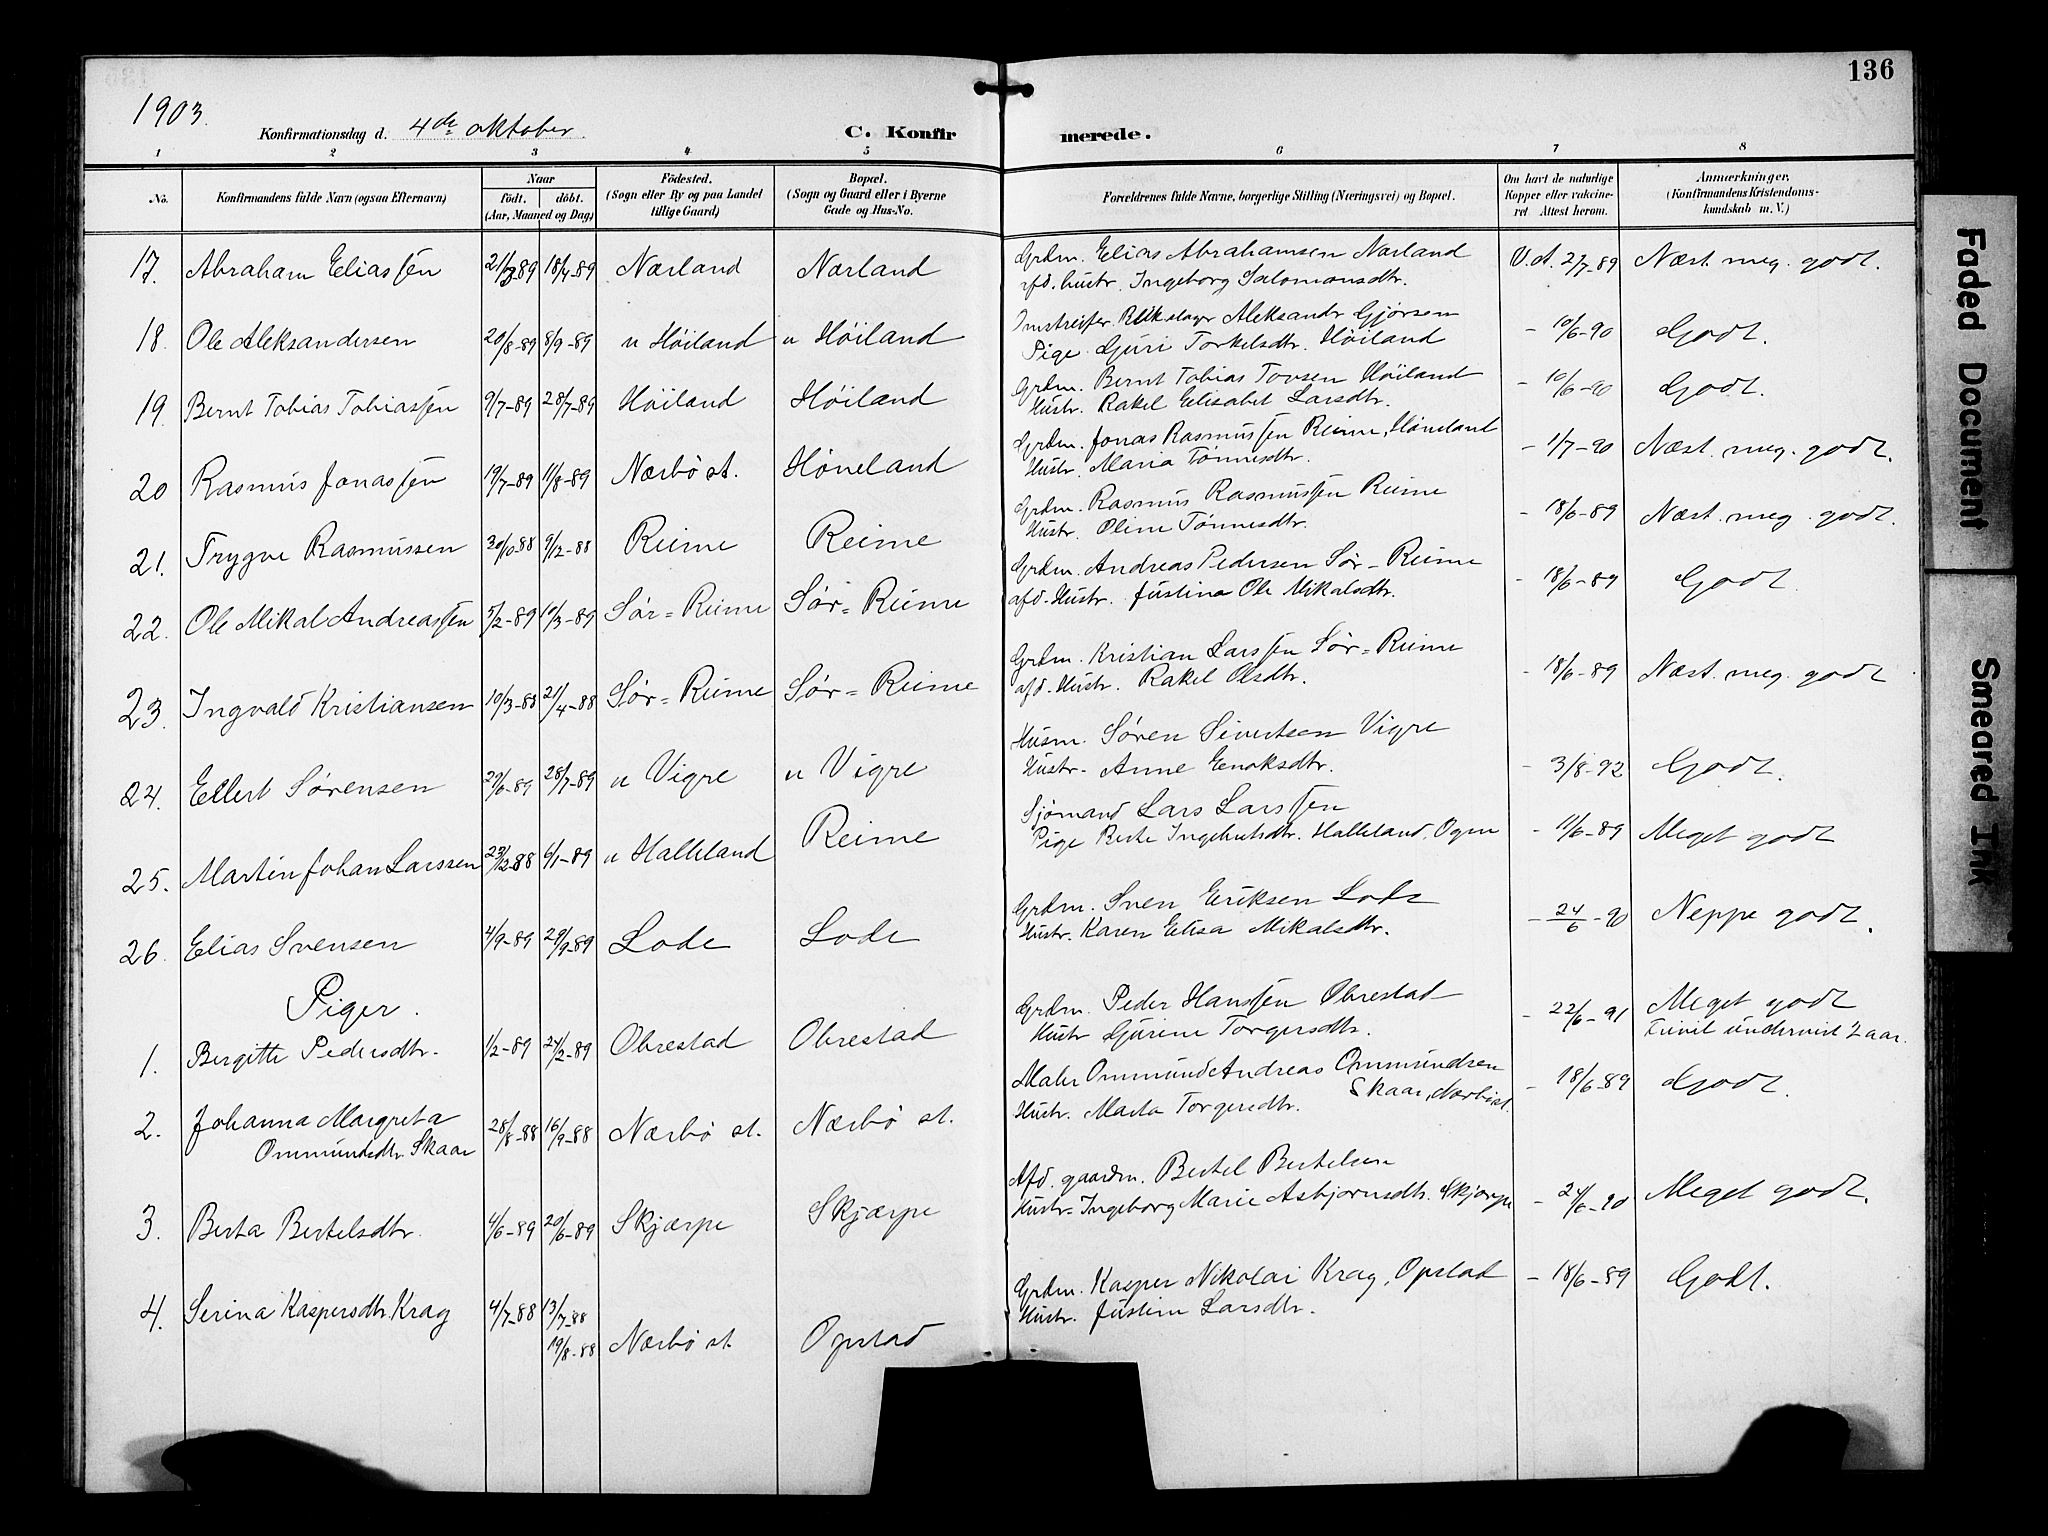 136
1903.
Konfirmationsdag d. 4de oktober. C. Konfir merede.
1 2 3 4 5 6 7 8
No. Konfirmandens fulde Navn (ogsaa Efternavn) Naar født. døbt. (Aar, Maaned og Dag) Fødested. (Sogn eller By og paa Landet tillige Gaard) Bopæl. (Sogn og Gaard eller i Byerne Gade og Hus-No. Forældrenes fulde Navne, borgerlige Stilling (Næringsvei) og Bopæl. Om havt de naturlige Kopper eller vakcineret Attest herom. Anmærkninger. (Konfirmandens Kristendomskundskab m. V.)
17. Abraham Eliassen 21/3-89 18/4-89 Nærland Nærland Grdm. Elias Abrahamsen Nærland V.A. 2/7-89 Næst. meg. godt.
afd. hustr. Ingeborg Salomonsdtr.
18. Ole Aleksandersen 20/8-89 8/9-89 u Høiland u Høiland Omstreifer Aleksander Gjørsen - 10/6-90 Godt.
Pige Guri Torkelsdtr. Høiland
19. Bernt Tobias Tobiassen 9/7-89 28/7-89 Høiland Høiland Grdm. Bernt Tobias Tovsen Høiland - 10/6-90 Godt.
Hustr. Rakel Elisabet Larsdtr.
20 Rasmus Jonassen 19/7-89 11/8-89 Nærbø st. Høneland Grdm. Jonas Rasmussen Reime, Høneland - 1/7-90 Næst. meg. godt.
Hustr. Maria Tønnesdtr.
21. Trygve Rasmussen 30/10-88 9/12-88 Reime Reime Grdm. Rasmus Rasmussen Reime - 18/6-89 Næst. meg. godt.
Hustr. Oline Tønnesdtr.
22. Ole Mikal Andreassen 5/2-89 10/3-89 Sør=Reime Sør=Reime Grdm. Andreas Pedersen Sør-Reime - 18/6-89 Godt.
afd. Hustr. Justina Ole Mikalsdtr.
23. Ingvald Kristiansen 10/3-88 21/4-88 Sør=Reime Sør=Reime Grdm. Kristian Larssen Sør=Reime - 18/6-89 Næst. meg. godt
afd. Hustr. Rakel Olsdtr.
24. Ellert Sørensen 29/6-89 28/7-89 u Vigre u Vigre Husm. Søren Sivertsen Vigre - 3/8-92 Godt.
Hustr. Anne Enoksdtr.
25. Martin Johan Larssen 23/12-88 6/1-89 u Halleland Reime Sjømand Lars Larssen - 11/6-89 Meget godt
Pige Berte Ingebretsdtr. Halleland, Ogne
26. Elias Svensen 4/9-89 29/9-89 Lode Lode Grdm. Sven Eriksen Lode - 24/6-90 Neppe godt.
Hustr. Karen Elisa Mikalsdtr.
Piger.
1. Bergitte Pedersdtr. 1/2-89 24/2-89 Obrestad Obrestad Grdm. Peder Hanssen Obrestad - 22/6-91 Meget godt
Hustr Gurine Torgersdtr. undervist 2 aar.
2. Johanna Margreta Ommundsdtr. Skaar 28/8-88 16/9-88 Nærbø st. Nærbø st. Maler Ommund Andreas Ommundsen Skaar, Nærbø st. - 18/6-89 Godt.
Hustr. Marta Torgersdtr.
3. Berta Bertelsdtr. 4/6-89 20/6-89 Skjærpe Skjærpe Afd. gaardm. Bertel Bertelsen - 24/6-90 Meget godt.
Hustr. Ingeborg Marie Asbjørnsdtr. Skjærpe
4. Serina Kaspersdtr. Krag 4/7-88 13/7-88 19/8-88 Nærbø st. Opstad Grdm. Kasper Nikolai Krag, Opstad - 18/6-89 Godt.
Hustr. Justine Larsdtr.
Faded Document
Smeared Ink